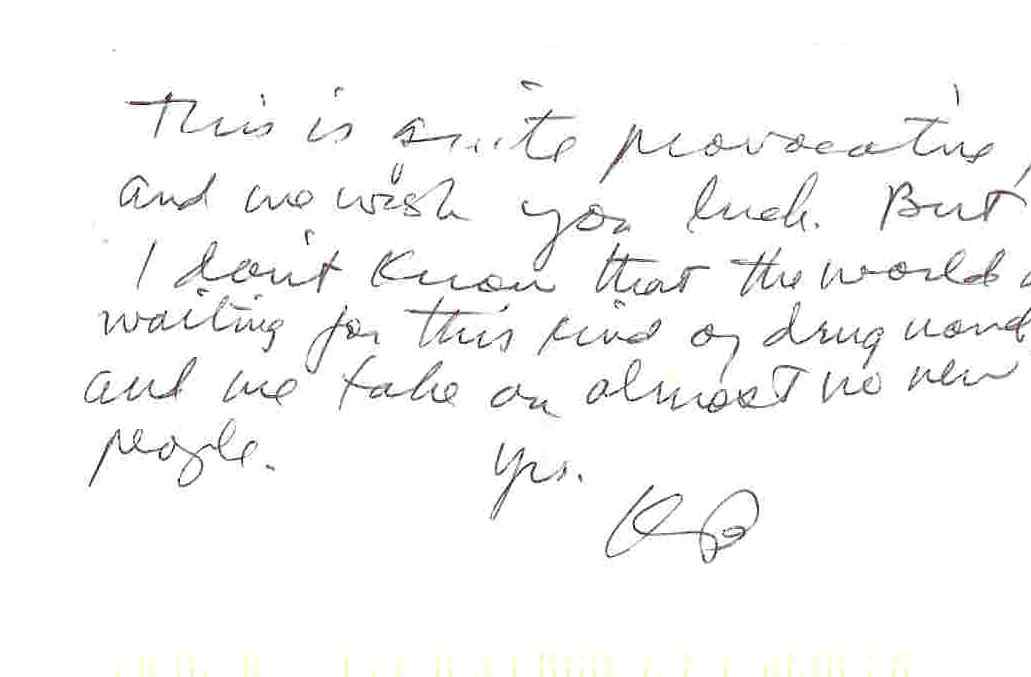 This is quite provocative,
and we wish you luck. But
I don't know that the world
waiting for this kind of drug
and we take on almost no new
people. Yrs.